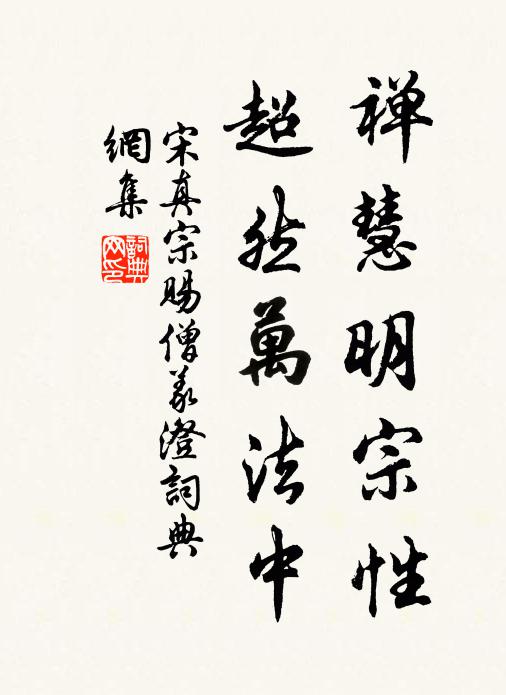 禅慧明宗性
超然萬法中
宋真宗賜僧義澄詞典
網集
詞典
网印